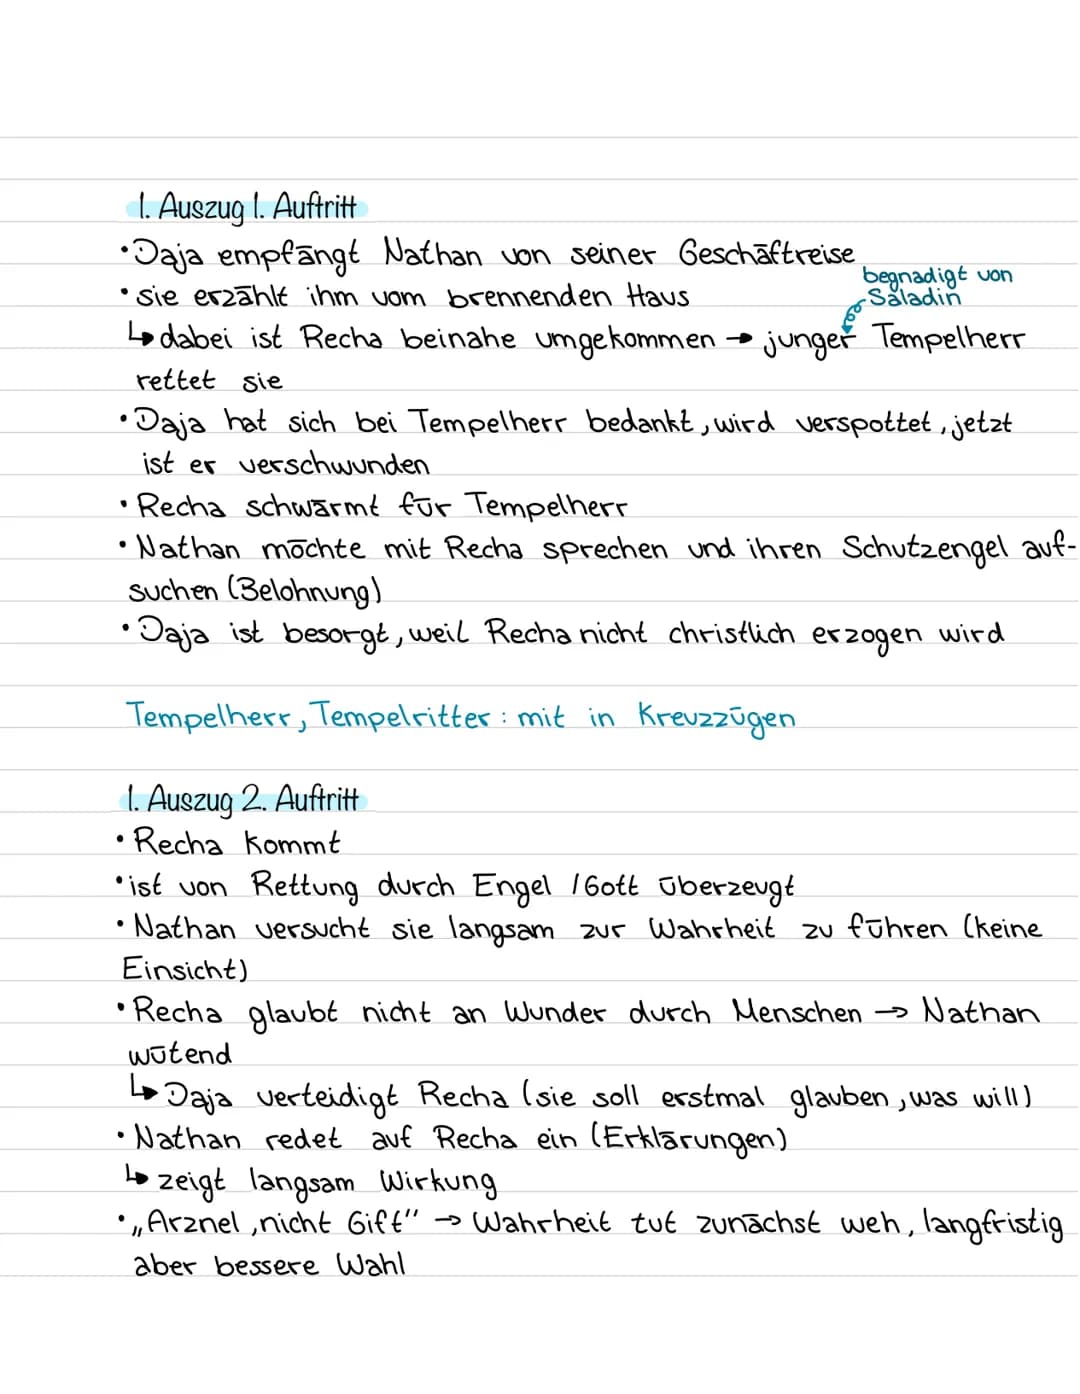 1. Auszug 1. Auftritt
• Daja empfängt Nathan von seiner Geschäftreise
• sie erzählt ihm vom brennenden Haus
begnadigt von
Saladin
↳ dabei ist Recha beinahe umgekommen → junger Tempelherr
rettet sie
• Daja hat sich bei Tempelherr bedankt, wird verspottet, jetzt
ist er verschwunden
• Recha schwärmt für Tempelherr
• Nathan möchte mit Recha sprechen und ihren Schutzengel auf-
suchen (Belohnung)
• Daja ist besorgt, weil Recha nicht christlich erzogen wird
Tempelherr, Tempelritter: mit in Kreuzzügen
1. Auszug 2. Auftritt
• Recha kommt
• ist von Rettung durch Engel /Gott überzeugt
• Nathan versucht sie langsam zur Wahrheit zu führen (keine
Einsicht)
• Recha glaubt nicht an Wunder durch Menschen → Nathan
wütend
↳ Daja verteidigt Recha (sie soll erstmal glauben, was will)
• Nathan redet auf Recha ein (Erklärungen)
↳ zeigt langsam Wirkung
• „Arznel, nicht Gift" → Wahrheit tut zunächst weh, langfristig
aber bessere Wahl